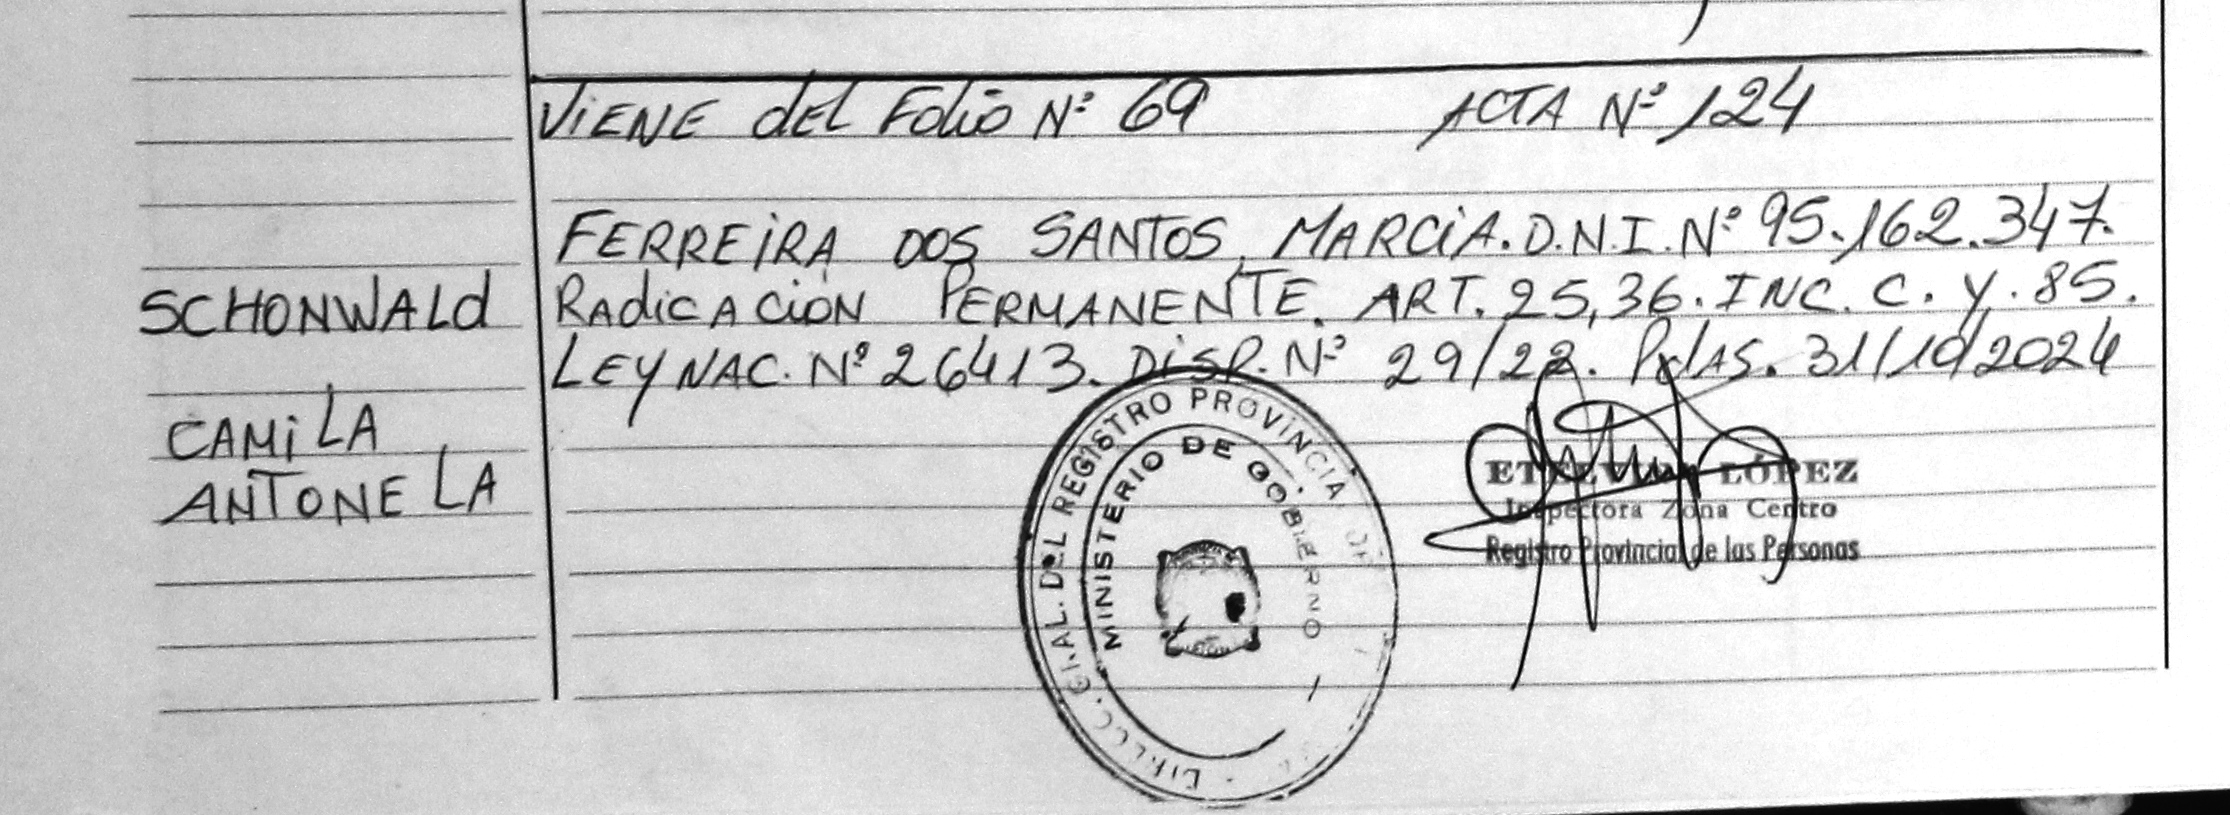 VIENE del Folio Nº 69 ACTA Nº 124
FERREIRA DOS SANTOS, MARCIA. D.N.I. Nº 95.162.347.
SCHONWALD
RadicACION PERMANENTE. ART. 25,36. INC. C. Y. 85.
LEY NAC. Nº 26413. DISP. Nº 29/22. PdAS. 31/10/2024
CAMILA
ANTONELA
GRAL. DEL REGISTRO PROVINCIAL DE
MINISTERIO DE GOBIERNO
LÓPEZ
Inspectora Zona Centro
Registro Provincial de las Personas